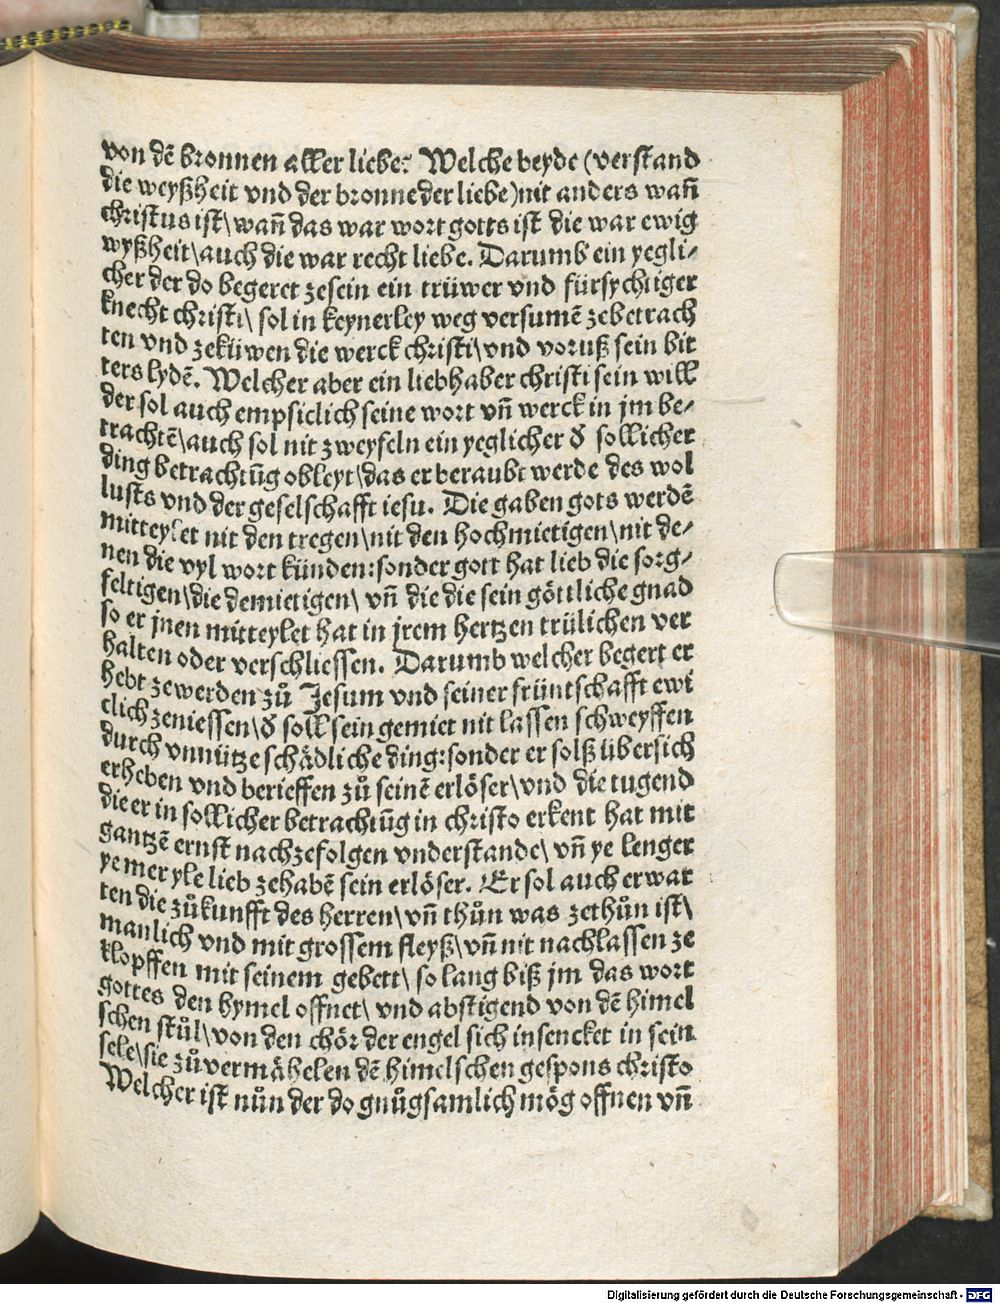 von dē bronnen aller liebe: Welche beyde (verstand
die weyßheit vnd der bronne der liebe) nit anders wañ
christus ist\ wañ das war wort gotts ist die war ewig
wyßheit\ auch die war recht liebe. Darumb ein yegli⸗
cher der do begeret zesein ein trüwer vnd fürsychtiger
knecht christi\ sol in keynerley weg versumē zebetrach
ten vnd zeküwen die werck christi\ vnd voruß sein bit
ters lydē. Welcher aber ein liebhaber christi sein will
der sol auch empsiclich seine wort vñ werck in jm be⸗
trachtē\ auch sol nit zweyfeln ein yeglicher ð sollicher
ding betrachtūg obleyt\ das er beraubt werde des wol
lusts vnd der geselschafft iesu. Die gaben gots werdē
mitteylet nit den tregen\ nit den hochmietigen\ nit de⸗
nen die vyl wort künden: sonder gott hat lieb die sorg⸗
feltigen\ die demietigen\ vñ die die sein göttliche gnad
so er jnen mitteylet hat in jrem hertzen trülichen ver
halten oder verschliessen. Darumb welcher begert er
hebt zewerden zů Jesum vnd seiner früntschafft ewi
clich zeniessen\ ð soll sein gemiet nit lassen schweyffen
durch vnnütze schädliche ding: sonder er solß übersich
erheben vnd berieffen zů seinē erlöser\ vnd die tugend
die er in sollicher betrachtūg in christo erkent hat mit
gantzē ernst nachzefolgen vnderstande\ vñ ye lenger
ye mer yle lieb zehabē sein erlöser. Er sol auch erwar
ten die zůkunfft des herren\ vñ thůn was zethůn ist\
manlich vnd mit grossem fleyß\ vñ nit nachlassen ze
klopffen mit seinem gebett\ so lang biß jm das wort
gottes den hymel offnet\ vnd abstigend von dē himel
schen stůl\ von den chör der engel sich insencket in sein
sele\ sie zůvermähelen dē himelschen gespons christo
Welcher ist nůn der do gnůgsamlich mög offnen vñ
Digitalisierung gefördert durch die Deutsche Forschungsgemeinschaft - DFG